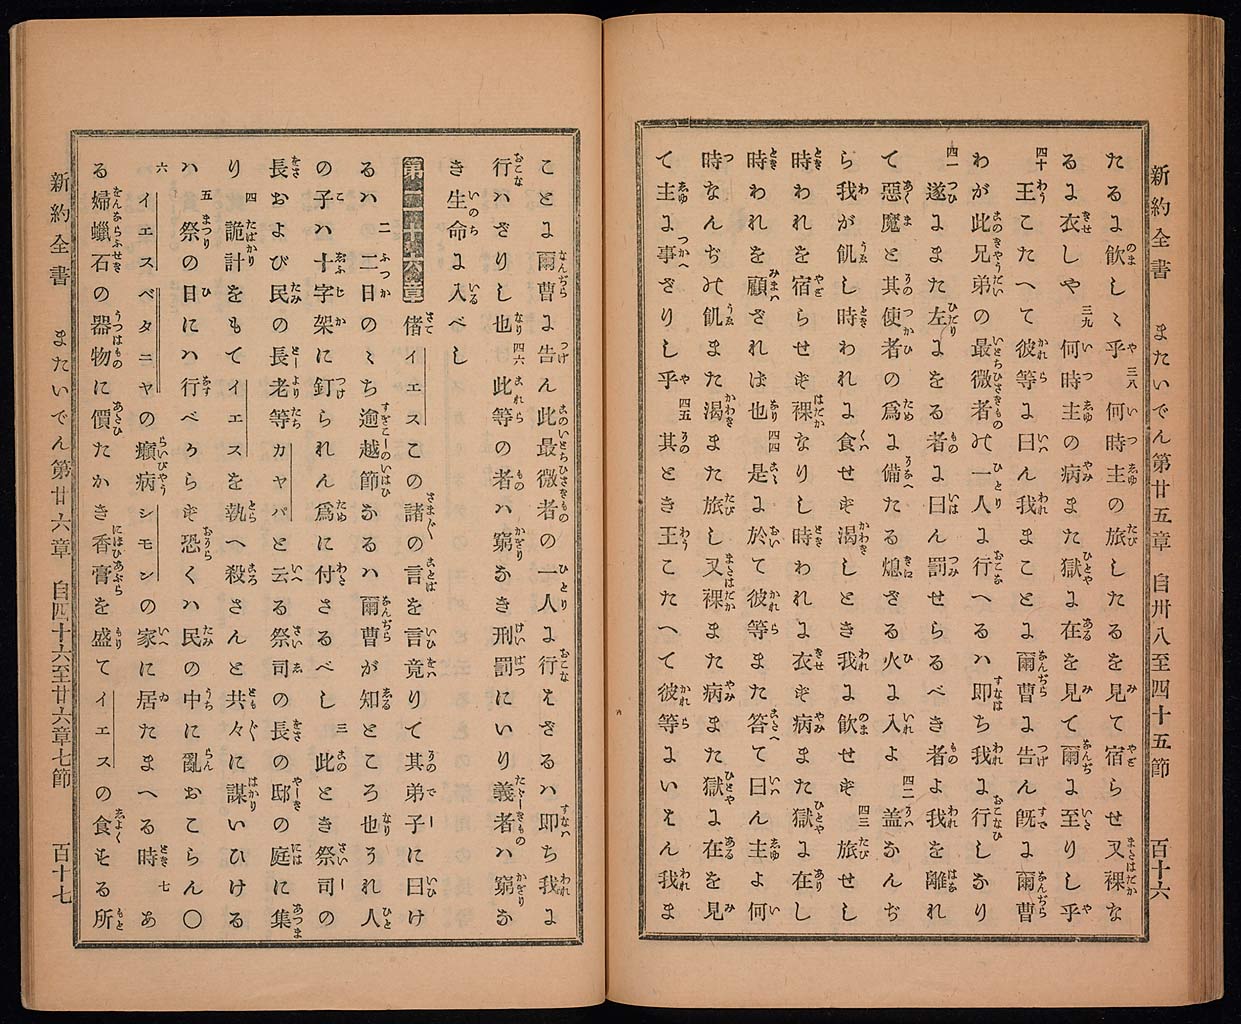 新約全書　またいでん第廿五章　自卅八至四十五節　百十六
たるよ飮しゝ乎三八何時主の旅したるを見て宿らせ又裸な
るよ衣しや三九何時主の病また獄よ在を見て爾よ至りし乎
四十王こたへて彼等よ曰ん我まことよ爾曹よ告ん旣よ爾曹
わが此兄弟の最微者の一人よ行へるハ即ち我よ行しなり
四一遂よまた左よをる者よ曰ん罰せらるべき者よ我を離れ
て惡魔と其使者の爲よ備たる熄ざる火よ入よ四二蓋なんぢ
ら我が飢し時われよ食せず渴しとき我よ飮せず四三旅せし
時われを宿らせず裸なりし時われよ衣ず病また獄よ在し
時われを顧ざれば也四四是よ於て彼等また答て曰ん主よ何
時なんぢの飢また渴また旅し又裸また病また獄よ在を見
て主よ事ざりし乎四五其とき王こたへて彼等よいはん我ま
ことよ爾曹よ告ん此最微者の一人よ行はざるハ即ち我よ
行ハざりし也四六此等の者ハ窮なき刑罰にいり義者ハ窮な
き生命よ入べし
第二十六章　偖イエスこの諸の言を言竟りて其弟子に曰け
るハ二二日のゝち逾越節なるハ爾曹が知ところ也われ人
の子ハ十字架に釘られん爲に付さるべし三此とき祭司の
長および民の長老等カヤパと云る祭司の長の邸の庭に集
り四詭計をもてイエスを執へ殺さんと共々に謀いひける
ハ五祭の日にハ行べからず恐くハ民の中に亂おこらん〇
六イエスベタニヤの癩病シモンの家に居たまへる時七あ
る婦蠟石の器物に價たかき香膏を盛てイエスの食する所
新約全書　またいでん第廿六章　自四十六至廿六章七節　百十七